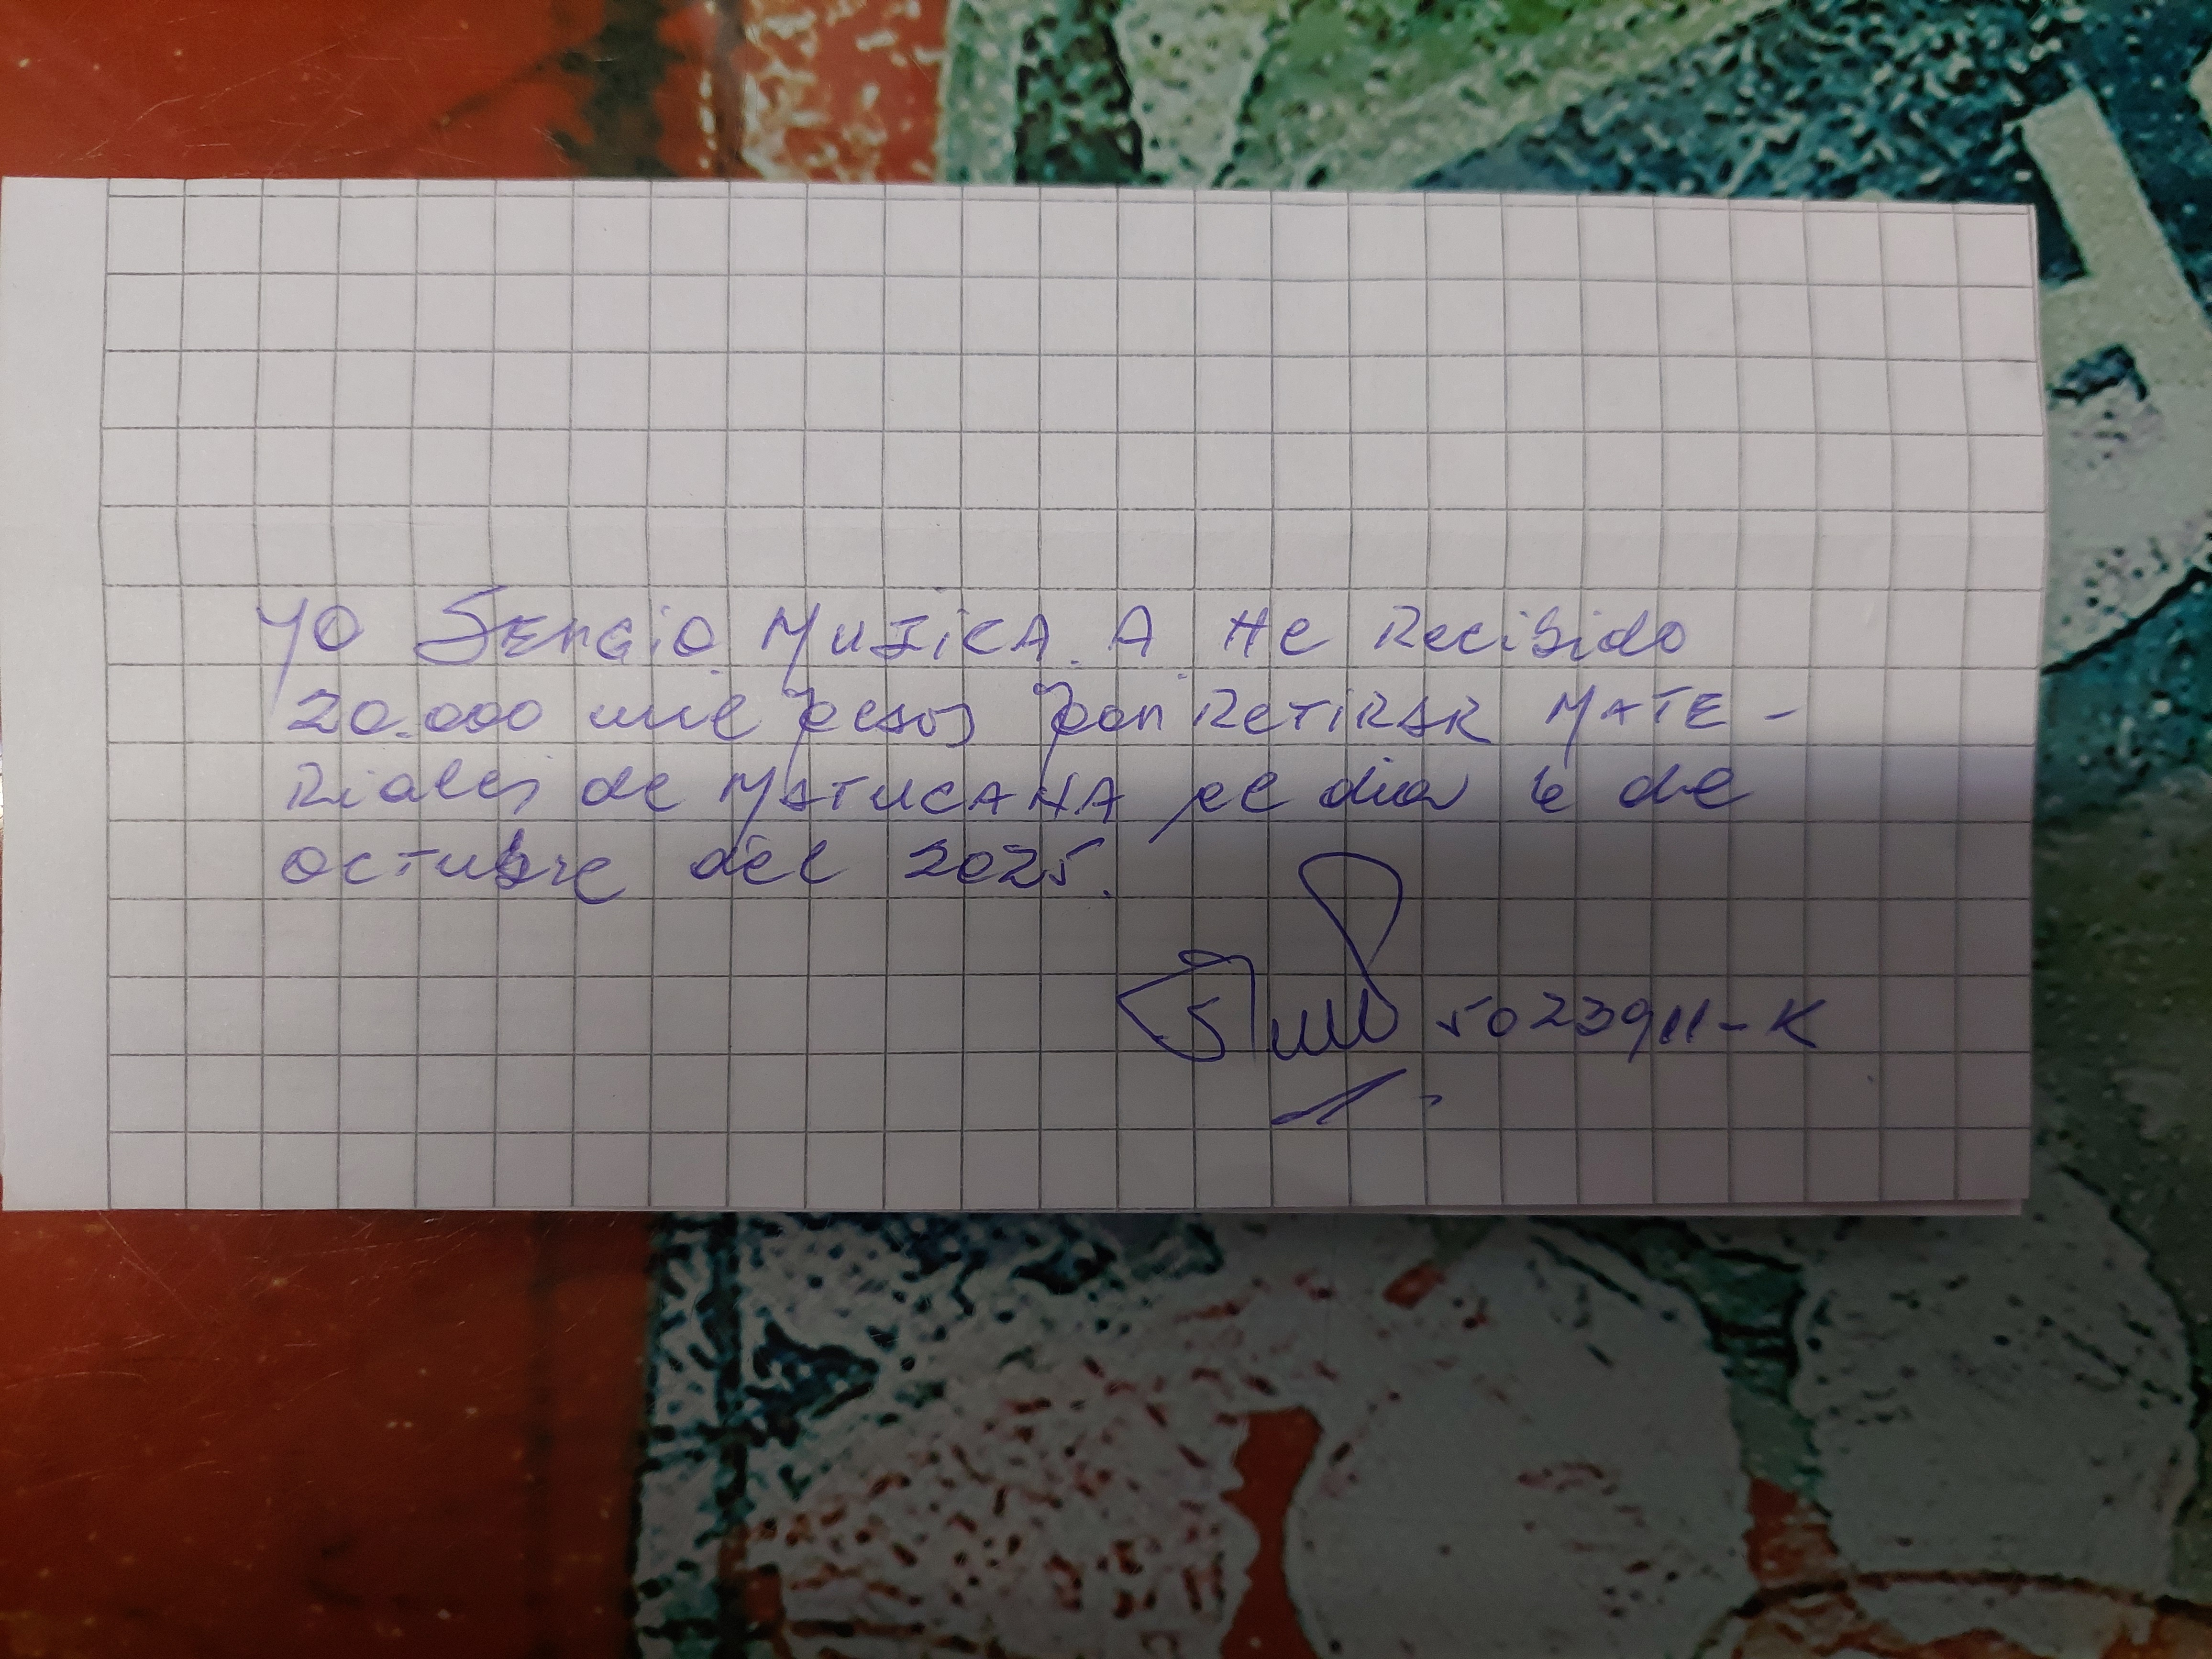 YO SERGIO MUJICA. A. He Recibido
20.000 mil pesos por RETIRAR MATE-
Riales de MATUCANA el dia 6 de
octubre del 2025.
5023911-K